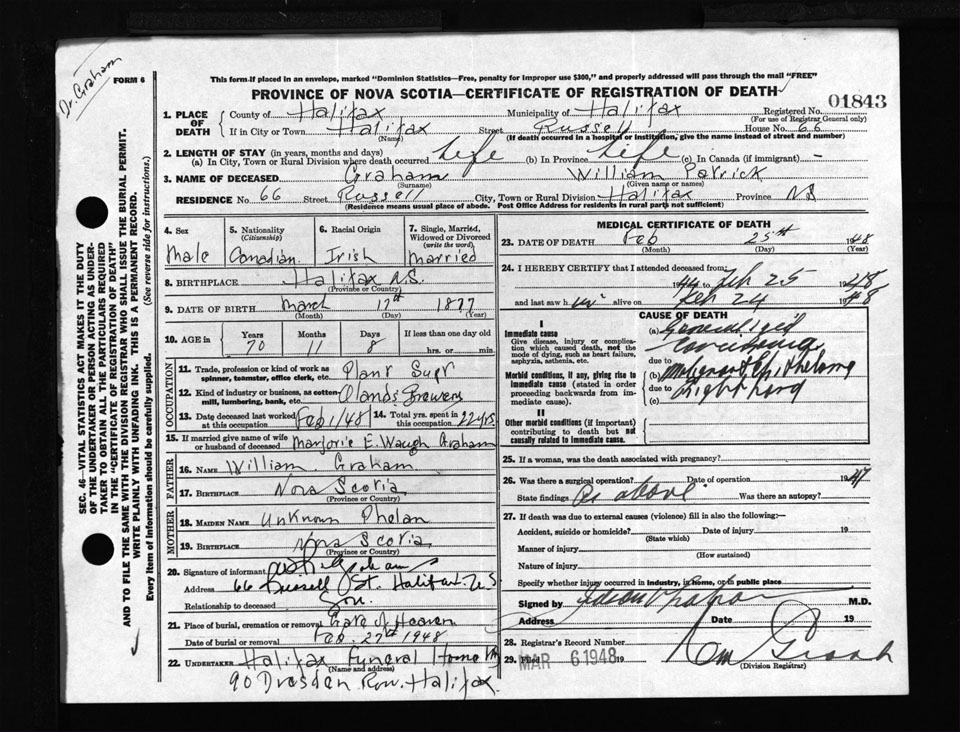 Dr. Graham
FORM 6
This form if placed in an envelope, marked "Dominion Statistics—Free, penalty for improper use $300," and properly addressed will pass through the mail "FREE"
PROVINCE OF NOVA SCOTIA—CERTIFICATE OF REGISTRATION OF DEATH
01843
1. PLACE OF DEATH
County of Halifax Municipality of Halifax Registered No.
(For use of Registrar General only)
If in City or Town Halifax Street Russell House No. 66
(Name) (If death occurred in a hospital or institution, give the name instead of street and number)
2. LENGTH OF STAY (in years, months and days)
(a) In City, Town or Rural Division where death occurred Life (b) In Province Life (c) In Canada (if immigrant) -
3. NAME OF DECEASED Graham William Patrick
(Surname) (Given name or names)
RESIDENCE No. 66 Street Russell City, Town or Rural Division Halifax Province NS
(Residence means usual place of abode. Post Office Address for residents in rural parts not sufficient)
4. Sex
Male
5. Nationality
(Citizenship)
Canadian
6. Racial Origin
Irish
7. Single, Married, Widowed or Divorced
(write the word)
Married
8. BIRTHPLACE Halifax N.S.
(Province or Country)
9. DATE OF BIRTH March 17th 1877
(Month) (Day) (Year)
10. AGE in Years Months Days If less than one day old
70 11 8 hrs. or min.
OCCUPATION
11. Trade, profession or kind of work as spinner, teamster, office clerk, etc. Plant Supt
12. Kind of industry or business, as cotton mill, lumbering, bank, etc. Olands Brewery
13. Date deceased last worked at this occupation Feb 1/48
14. Total yrs. spent in this occupation 22 yrs.
15. If married give name of wife or husband of deceased Marjorie E. Waugh Graham
FATHER
16. NAME William Graham
17. BIRTHPLACE Nova Scotia
(Province or Country)
MOTHER
18. MAIDEN NAME Unknown Phelan
19. BIRTHPLACE Nova Scotia
(Province or Country)
20. Signature of informant
Address 66 Russell St. Halifax N.S.
Relationship to deceased Son.
21. Place of burial, cremation or removal Gate of Heaven
Date of burial or removal Feb. 27th 1948
22. UNDERTAKER Halifax Funeral Home
(Name and address)
90 Dresden Row. Halifax.
MEDICAL CERTIFICATE OF DEATH
23. DATE OF DEATH Feb 25th 1948
(Month) (Day) (Year)
24. I HEREBY CERTIFY that I attended deceased from:
to Feb 25 1948
and last saw h im alive on Feb 24 1948
CAUSE OF DEATH
I
Immediate cause
Give disease, injury or complication which caused death, not the mode of dying, such as heart failure, asphyxia, asthenia, etc.
(a) Generalized
due to
Morbid conditions, if any, giving rise to immediate cause (stated in order proceeding backwards from immediate cause).
(b) Malignant Epithelioma
due to Right
(c)
II
Other morbid conditions (if important) contributing to death but not causally related to immediate cause.
25. If a woman, was the death associated with pregnancy?
26. Was there a surgical operation? Date of operation 1947
State findings As above. Was there an autopsy?
27. If death was due to external causes (violence) fill in also the following:—
Accident, suicide or homicide? Date of injury 19
(State which)
Manner of injury
(How sustained)
Nature of injury
Specify whether injury occurred in industry, in home, or in public place
Signed by M.D.
Address Date 19
28. Registrar's Record Number
29. Filed MAR 6 1948 19
(Division Registrar)
SEC. 46—VITAL STATISTICS ACT MAKES IT THE DUTY
OF THE UNDERTAKER OR PERSON ACTING AS UNDER-
TAKER TO OBTAIN ALL THE PARTICULARS REQUIRED
IN THE "CERTIFICATE OF REGISTRATION OF DEATH"
AND TO FILE THE SAME WITH THE DIVISION REGISTRAR WHO SHALL ISSUE THE BURIAL PERMIT.
WRITE PLAINLY WITH UNFADING INK. THIS IS A PERMANENT RECORD.
Every item of information should be carefully supplied. (See reverse side for instructions.)